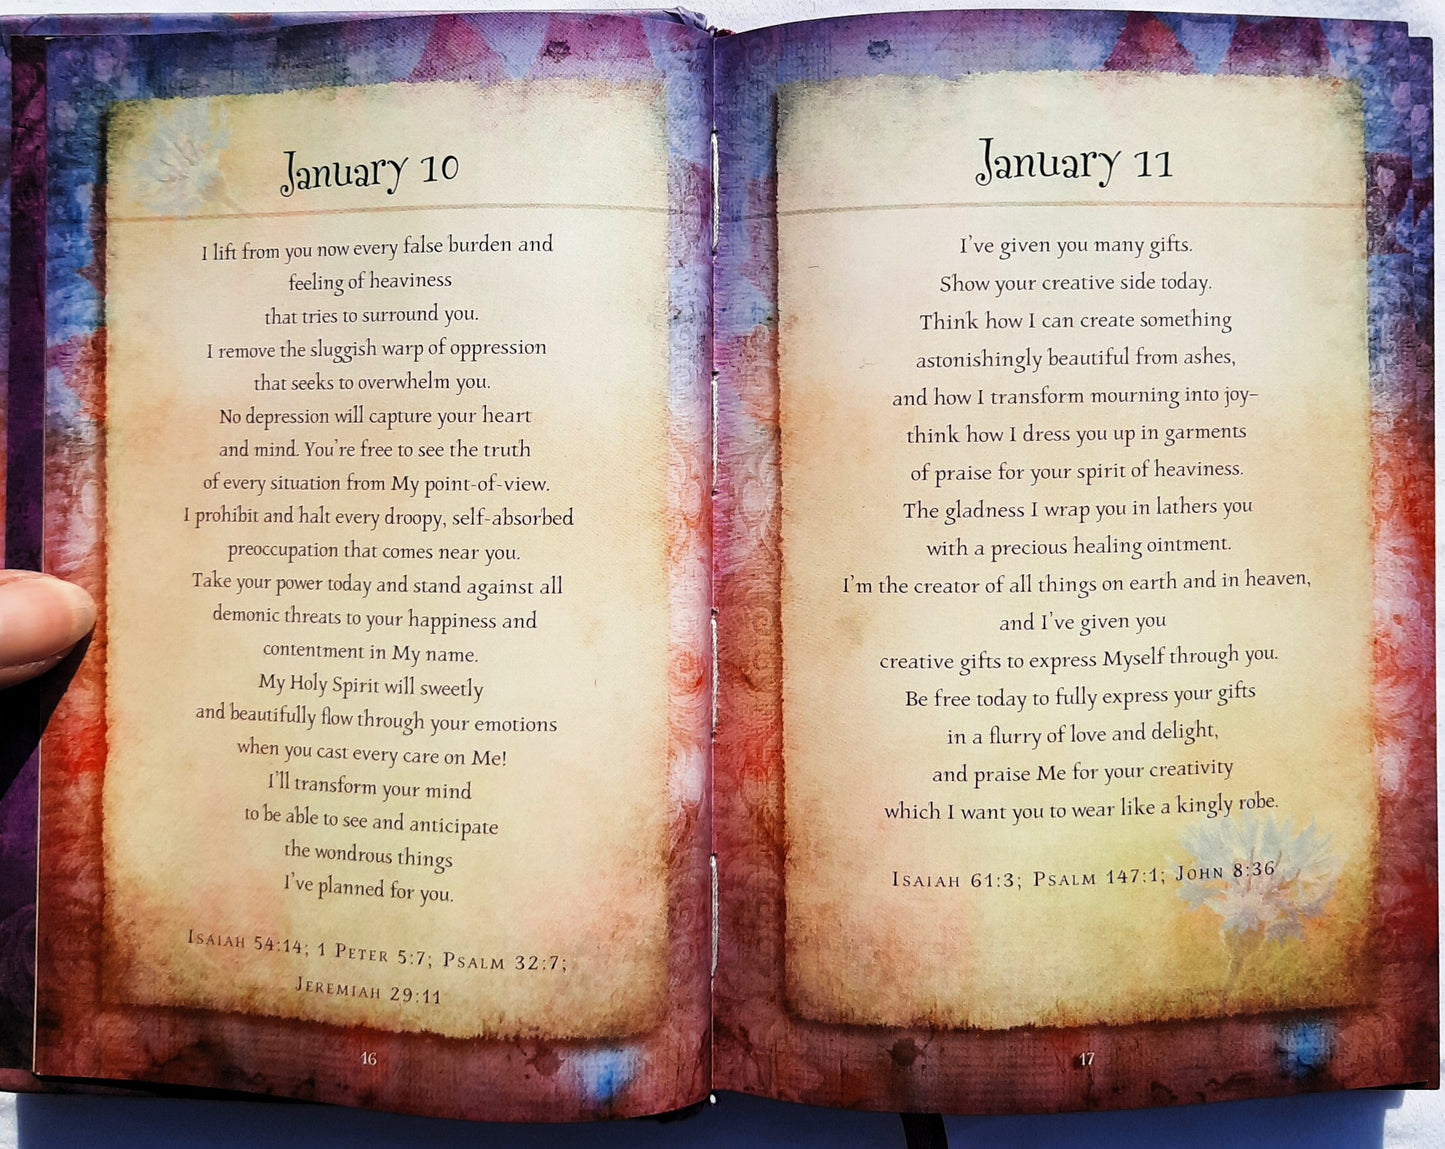 January 10
I lift from you now every false burden and
feeling of heaviness
that tries to surround you.
I remove the sluggish warp of oppression
that seeks to overwhelm you.
No depression will capture your heart
and mind. You're free to see the truth
of every situation from My point-of-view.
I prohibit and halt every droopy, self-absorbed
preoccupation that comes near you.
Take your power today and stand against all
demonic threats to your happiness and
contentment in My name.
My Holy Spirit will sweetly
and beautifully flow through your emotions
when you cast every care on Me!
I'll transform your mind
to be able to see and anticipate
the wondrous things
I've planned for you.
Isaiah 54:14; 1 Peter 5:7; Psalm 32:7;
Jeremiah 29:11
16
January 11
I've given you many gifts.
Show your creative side today.
Think how I can create something
astonishingly beautiful from ashes,
and how I transform mourning into joy–
think how I dress you up in garments
of praise for your spirit of heaviness.
The gladness I wrap you in lathers you
with a precious healing ointment.
I'm the creator of all things on earth and in heaven,
and I've given you
creative gifts to express Myself through you.
Be free today to fully express your gifts
in a flurry of love and delight,
and praise Me for your creativity
which I want you to wear like a kingly robe.
Isaiah 61:3; Psalm 147:1; John 8:36
17